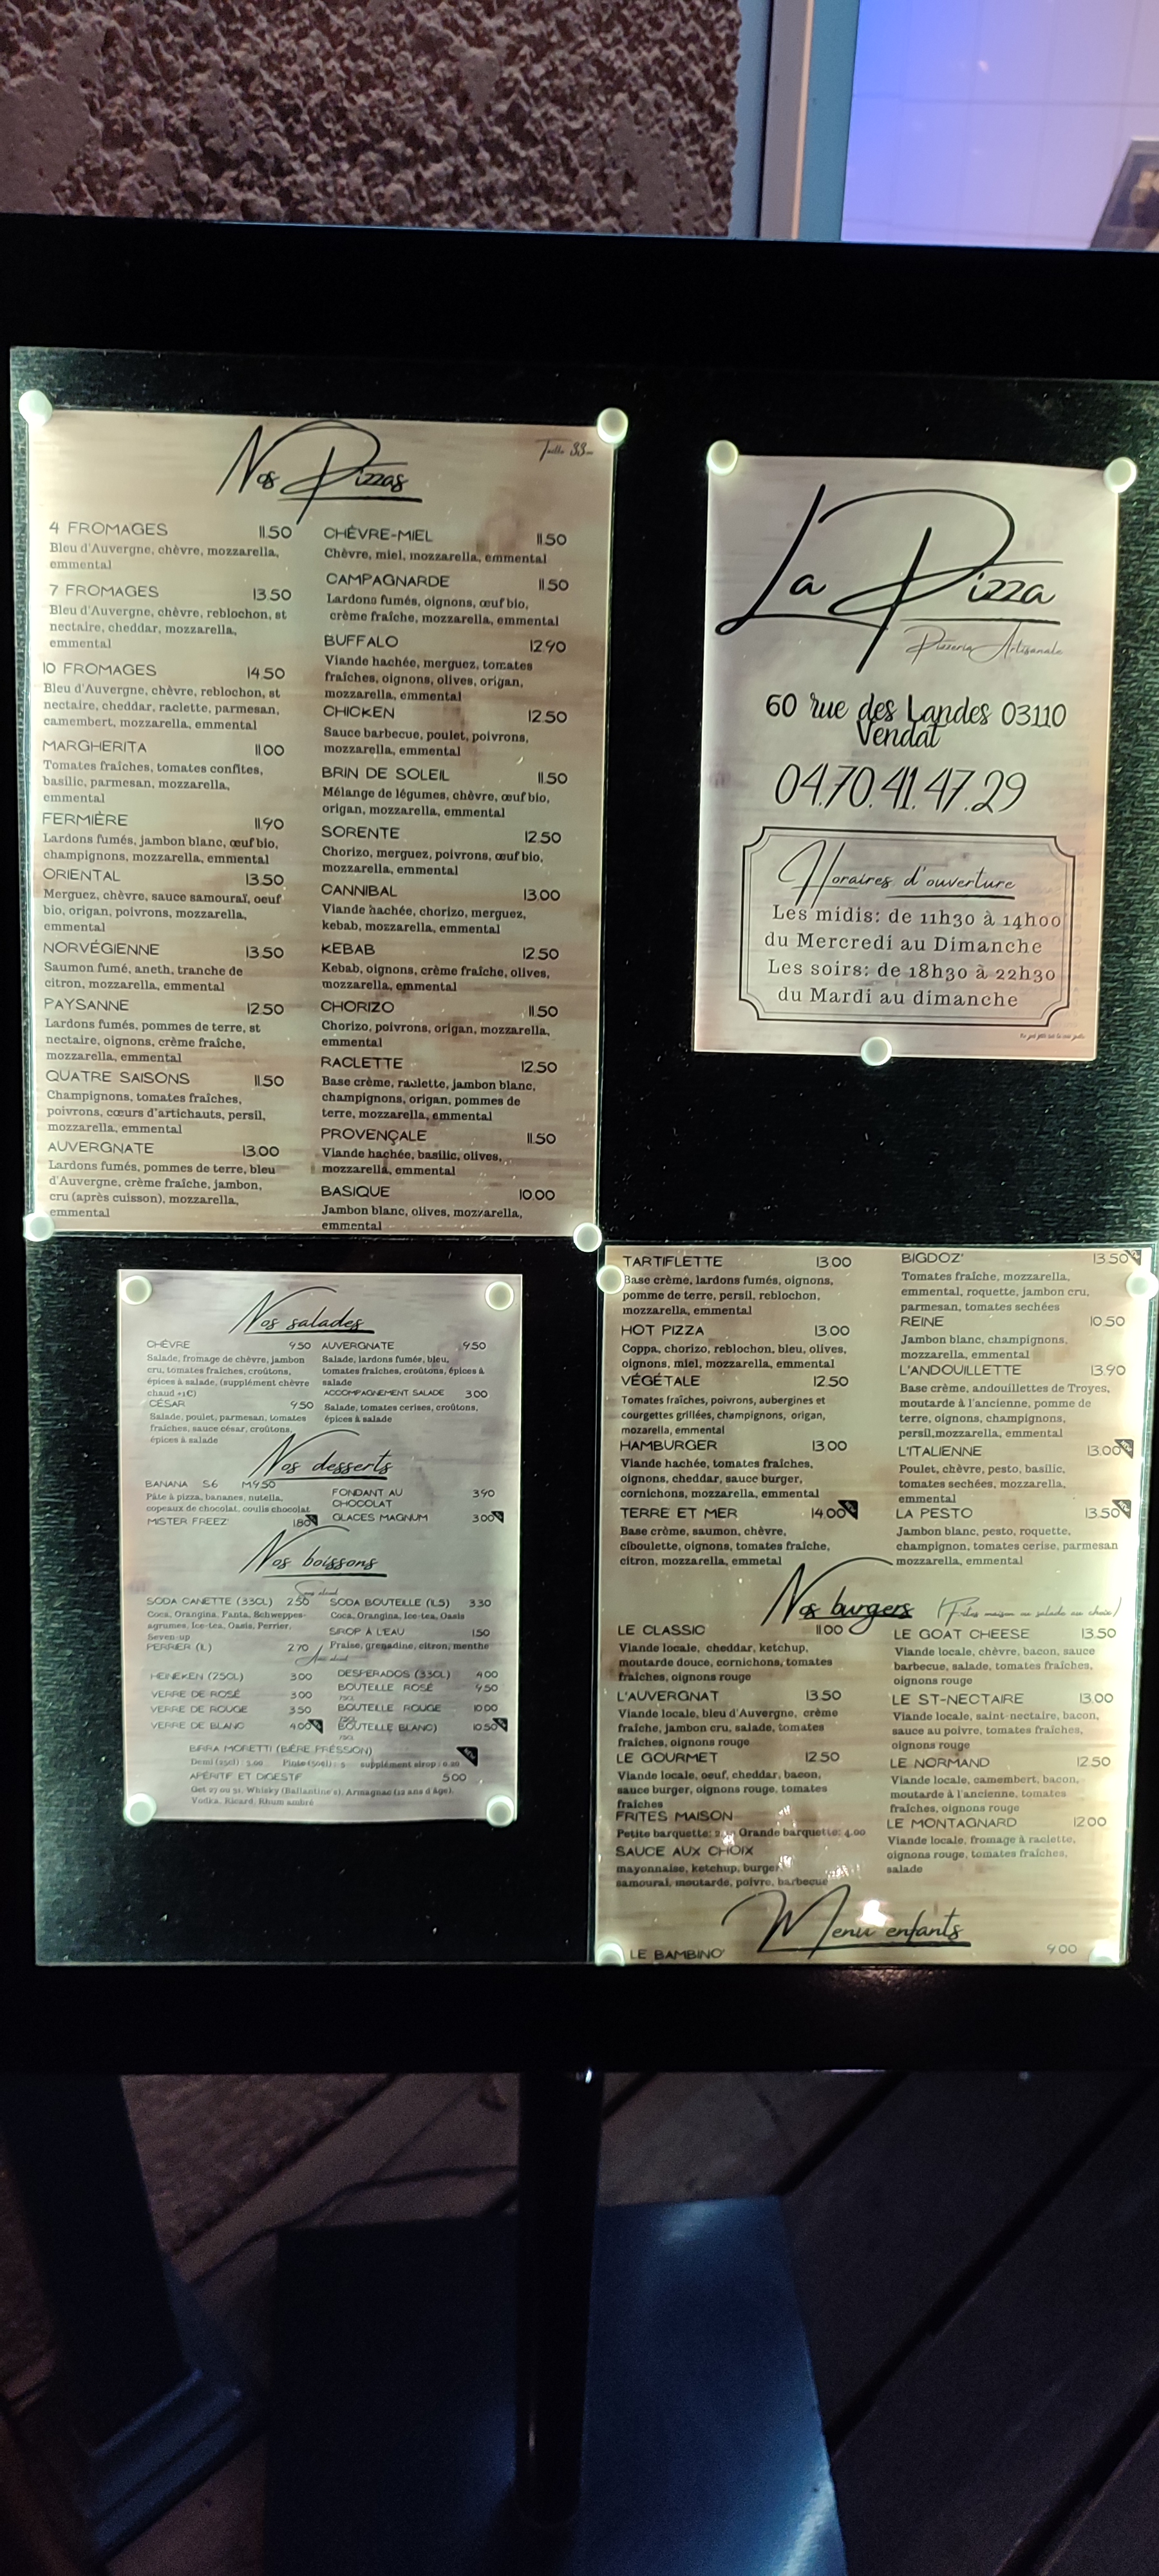 Nos Pizzas
Taille 33cm
4 FROMAGES 11.50
Bleu d'Auvergne, chèvre, mozzarella,
emmental
7 FROMAGES 13.50
Bleu d'Auvergne, chèvre, reblochon, st
nectaire, cheddar, mozzarella,
emmental
10 FROMAGES 14.50
Bleu d'Auvergne, chèvre, reblochon, st
nectaire, cheddar, raclette, parmesan,
camembert, mozzarella, emmental
MARGHERITA 11.00
Tomates fraîches, tomates confites,
basilic, parmesan, mozzarella,
emmental
FERMIÈRE 11.90
Lardons fumés, jambon blanc, œuf bio,
champignons, mozzarella, emmental
ORIENTAL 13.50
Merguez, chèvre, sauce samouraï, oeuf
bio, origan, poivrons, mozzarella,
emmental
NORVÉGIENNE 13.50
Saumon fumé, aneth, tranche de
citron, mozzarella, emmental
PAYSANNE 12.50
Lardons fumés, pommes de terre, st
nectaire, oignons, crème fraîche,
mozzarella, emmental
QUATRE SAISONS 11.50
Champignons, tomates fraîches,
poivrons, cœurs d'artichauts, persil,
mozzarella, emmental
AUVERGNATE 13.00
Lardons fumés, pommes de terre, bleu
d'Auvergne, crème fraîche, jambon,
cru (après cuisson), mozzarella,
emmental
CHÈVRE-MIEL 11.50
Chèvre, miel, mozzarella, emmental
CAMPAGNARDE 11.50
Lardons fumés, oignons, œuf bio,
crème fraîche, mozzarella, emmental
BUFFALO 12.90
Viande hachée, merguez, tomates
fraîches, oignons, olives, origan,
mozzarella, emmental
CHICKEN 12.50
Sauce barbecue, poulet, poivrons,
mozzarella, emmental
BRIN DE SOLEIL 11.50
Mélange de légumes, chèvre, œuf bio,
origan, mozzarella, emmental
SORENTE 12.50
Chorizo, merguez, poivrons, œuf bio,
mozzarella, emmental
CANNIBAL 13.00
Viande hachée, chorizo, merguez,
kebab, mozzarella, emmental
KEBAB 12.50
Kebab, oignons, crème fraîche, olives,
mozzarella, emmental
CHORIZO 11.50
Chorizo, poivrons, origan, mozzarella,
emmental
RACLETTE 12.50
Base crème, raclette, jambon blanc,
champignons, origan, pommes de
terre, mozzarella, emmental
PROVENÇALE 11.50
Viande hachée, basilic, olives,
mozzarella, emmental
BASIQUE 10.00
Jambon blanc, olives, mozzarella,
emmental
La Pizza
Pizzeria Artisanale
60 rue des Landes 03110
Vendat
04.70.41.47.29
Horaires d'ouverture
Les midis: de 11h30 à 14h00
du Mercredi au Dimanche
Les soirs: de 18h30 à 22h30
du Mardi au dimanche
Nos salades
CHÈVRE 9.50
Salade, fromage de chèvre, jambon
cru, tomates fraîches, croûtons,
épices à salade, (supplément chèvre
chaud +1€)
CÉSAR 9.50
Salade, poulet, parmesan, tomates
fraîches, sauce césar, croûtons,
épices à salade
AUVERGNATE 9.50
Salade, lardons fumés, bleu,
tomates fraîches, croûtons, épices à
salade
ACCOMPAGNEMENT SALADE 3.00
Salade, tomates cerises, croûtons,
épices à salade
Nos desserts
BANANA S6 M9.50
Pâte à pizza, bananes, nutella,
copeaux de chocolat, coulis chocolat
MISTER FREEZ' 1.80
FONDANT AU 3.90
CHOCOLAT
GLACES MAGNUM 3.00
Nos boissons
Sans alcool
SODA CANETTE (33CL) 2.50
Coca, Orangina, Fanta, Schweppes-
agrumes, Ice-tea, Oasis, Perrier,
Seven-up
PERRIER (1L) 2.70
SODA BOUTEILLE (1L5) 3.30
Coca, Orangina, Ice-tea, Oasis
SIROP À L'EAU 1.50
Fraise, grenadine, citron, menthe
Avec alcool
HEINEKEN (25CL) 3.00
VERRE DE ROSÉ 3.00
VERRE DE ROUGE 3.50
VERRE DE BLANC 4.00
DESPERADOS (33CL) 4.00
BOUTEILLE ROSÉ 9.50
75CL
BOUTEILLE ROUGE 10.00
75CL
BOUTEILLE BLANC) 10.50
BIRRA MORETTI (BIÈRE PRÉSSION)
Demi (25cl) : 3.00 Pinte (50cl) : 5 supplément sirop : 0.20
APÉRITIF ET DIGESTIF 5.00
Get 27 ou 31, Whisky (Ballantine's), Armagnac (12 ans d'âge),
Vodka, Ricard, Rhum ambré
TARTIFLETTE 13.00
Base crème, lardons fumés, oignons,
pomme de terre, persil, reblochon,
mozzarella, emmental
HOT PIZZA 13.00
Coppa, chorizo, reblochon, bleu, olives,
oignons, miel, mozzarella, emmental
VÉGÉTALE 12.50
Tomates fraîches, poivrons, aubergines et
courgettes grillées, champignons, origan,
mozarella, emmental
HAMBURGER 13.00
Viande hachée, tomates fraîches,
oignons, cheddar, sauce burger,
cornichons, mozzarella, emmental
TERRE ET MER 14.00
Base crème, saumon, chèvre,
ciboulette, oignons, tomates fraîche,
citron, mozzarella, emmetal
BIGDOZ' 13.50
Tomates fraîche, mozzarella,
emmental, roquette, jambon cru,
parmesan, tomates sechées
REINE 10.50
Jambon blanc, champignons,
mozzarella, emmental
L'ANDOUILLETTE 13.90
Base crème, andouillettes de Troyes,
moutarde à l'ancienne, pomme de
terre, oignons, champignons,
persil,mozzarella, emmental
L'ITALIENNE 13.00
Poulet, chèvre, pesto, basilic,
tomates sechées, mozzarella,
emmental
LA PESTO 13.50
Jambon blanc, pesto, roquette,
champignon, tomates cerise, parmesan
mozzarella, emmental
Nos burgers (Frites maison ou salade au choix)
LE CLASSIC 11.00
Viande locale, cheddar, ketchup,
moutarde douce, cornichons, tomates
fraîches, oignons rouge
L'AUVERGNAT 13.50
Viande locale, bleu d'Auvergne, crème
fraîche, jambon cru, salade, tomates
fraîches, oignons rouge
LE GOURMET 12.50
Viande locale, oeuf, cheddar, bacon,
sauce burger, oignons rouge, tomates
fraîches
FRITES MAISON
Petite barquette: Grande barquette: 4.00
SAUCE AUX CHOIX
mayonnaise, ketchup, burger,
samouraï, moutarde, poivre, barbecue
LE GOAT CHEESE 13.50
Viande locale, chèvre, bacon, sauce
barbecue, salade, tomates fraîches,
oignons rouge
LE ST-NECTAIRE 13.00
Viande locale, saint-nectaire, bacon,
sauce au poivre, tomates fraîches,
oignons rouge
LE NORMAND 12.50
Viande locale, camembert, bacon,
moutarde à l'ancienne, tomates
fraîches, oignons rouge
LE MONTAGNARD 12.00
Viande locale, fromage à raclette,
oignons rouge, tomates fraîches,
salade
Menu enfants
LE BAMBINO' 9.00